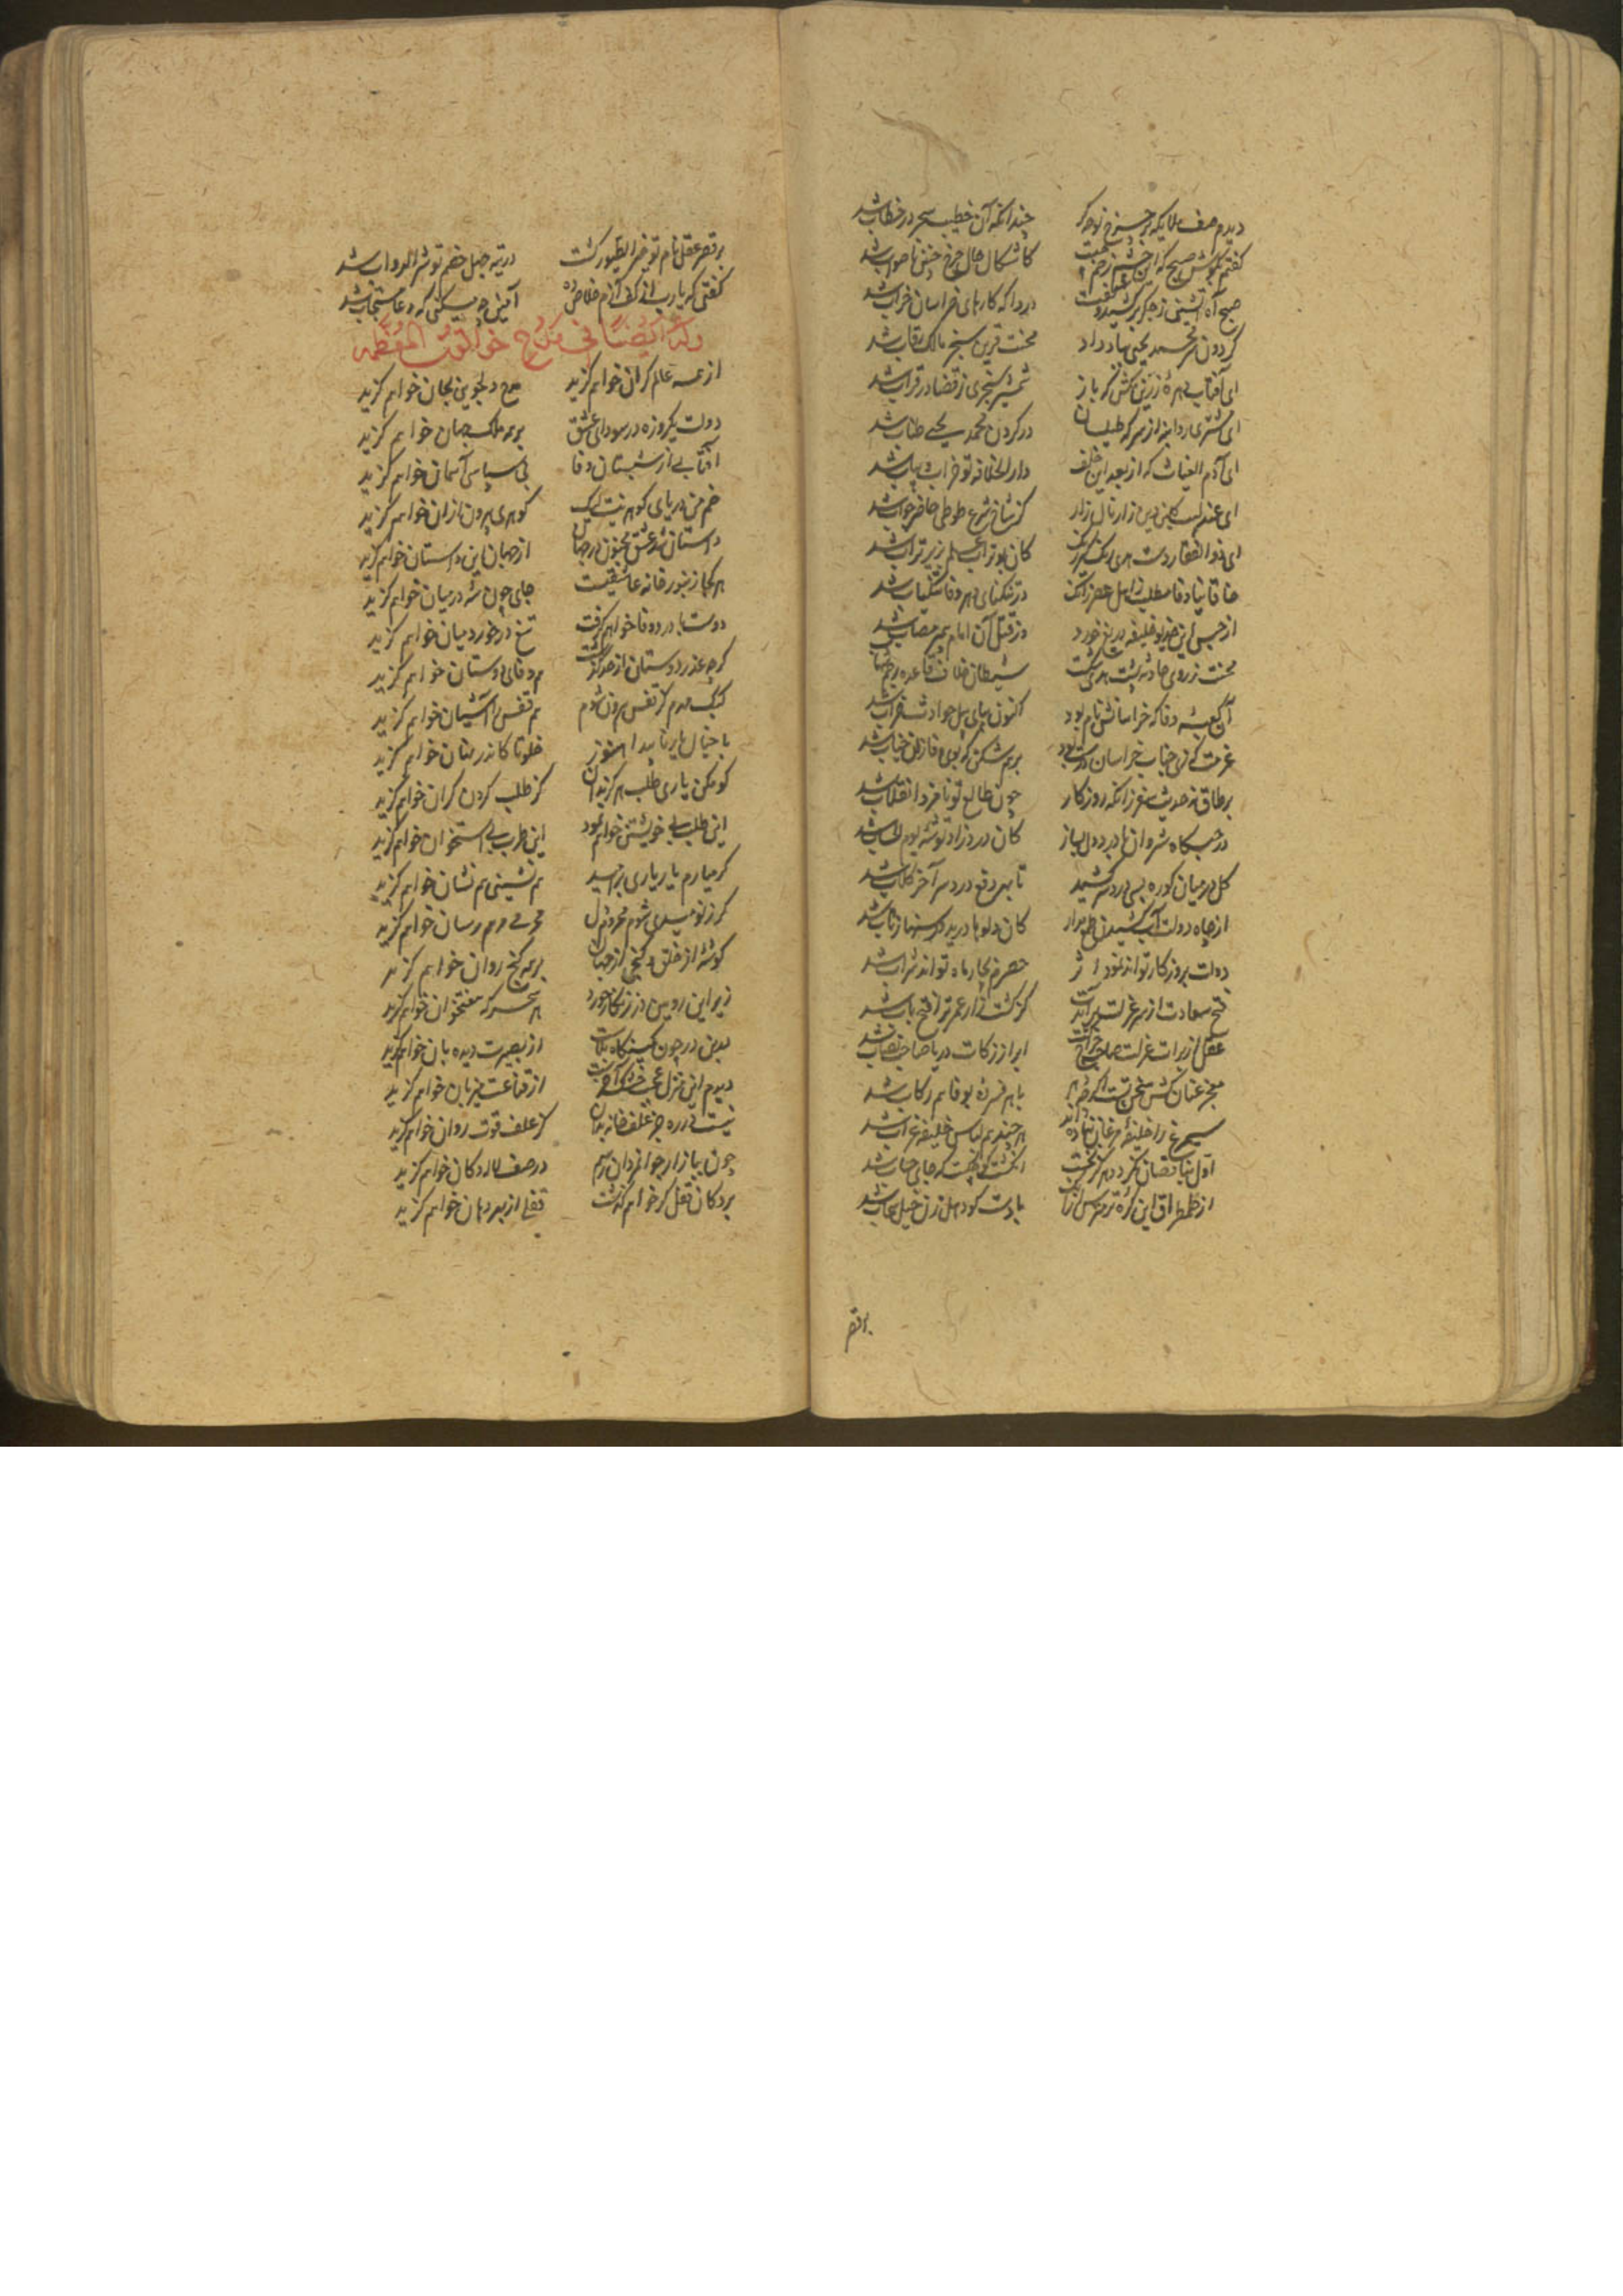 دیدم صف ملایکه بر چرخ نوحه گر چندانکه آن خطیب سحر در خطاب شد
گفتم بگوش صبح که این چشم زخم چیست کاشکال حال چرخ چنین ناصواب شد
صبح آه آتشین ز جگر برکشید و گفت دردا که کارهای خراسان خراب شد
گردون سر محمد یحیی بباد داد محنت قرین سنجر مالک رقاب شد
ای آفتاب بهره زرین مکش که باز شمشیر سنجری ز قضا در قراب شد
ای مشتری ردا بنه از سر که طیلسان در گردن محمد یحیی طناب شد
ای آدم الغیاث که از بعد این خلف دار الخلافه تو خراب و یباب شد
ای عندلیب گلبن دین زار نال زار کز شاخ شرع طوطی حاضر جواب شد
ای ذو الفقار دست هدی زنگ گیر زنگ کان بوتراب علم بزیر تراب شد
خاقانیا وفا مطلب ز اهل عصر از آنک در تنگنای دهر وفا تنگیاب شد
از حبس این خدیو خلیفه دریغ خورد وز قتل آن امام پیمبر مصاب شد
محنت ز روی حادثه پشت هدی شکست شیطان خلاف قاعده رجم شهاب شد
آن کعبه وفا که خراسانش نام بود اکنون بپای پیل حوادث خراب شد
عزمت که زی جناب خراسان درست بود برهم شکن که بوی وفا زان جناب شد
بر طاق نه حدیث سفر زانکه روزگار چون طالع تو نامزد انقلاب شد
در حبسگاه شروان با درد دل بساز کان درد راه توشه یوم الحساب شد
گل در میان کوره بسی درد سر کشید تا بهر دفع درد سر آخر گلاب شد
از چاه دولت آب کشیدن طمع مدار کان دلوها درید و رسنها ز تاب شد
دولت بروزگار تواند نمود اثر حصرم بچار ماه تواند شراب شد
فتح سعادت از سر عزلت برآیدت کز کشت زار عمر ترا فتح باب شد
معجز عنان کش سخن تست اگرچه دهر با هر فسرده بوفا هم رکاب شد
سیمرغ را خلیفه مرغان نهاده اند هر چند هم لباس خلیفه غراب شد
اول بناقصان نگرد دهر کز نخست انگشت کوچکست که جای حساب شد
از طمطراق این گره تر مترس از آنک بادست کو دهل زن خیل سحاب شد
بر قصر
بر قصر عقل نام تو خیر الطیور گشت در تیه جهل خصم تو شر الدواب شد
گفتی که یارب از کف آزم خلاص ده آمین چه میکنی که دعا مستجاب شد
وله ایضا فی مدح خوانوت المعظمه
از همه عالم کران خواهم گزید عشق دلجویی بجان خواهم گزید
دولت یک روزه در سودای عشق بر همه ملک جهان خواهم گزید
آفتابی از شبستان وفا بی سپاس آسمان خواهم گزید
خم من دریای گوهر نیست لیک گوهری بیرون ازان خواهم گزید
داستان شد عشق مجنون در جهان از جهان این داستان خواهم گزید
هر کجا زنبور خانه عاشقیست جای چون شه در میان خواهم گزید
دوست با درد وفا خواهم گرفت تیغ در خورد میان خواهم گزید
گرچه غدر دوستان از حد گذشت هم وفای دوستان خواهم گزید
کبک مهرم کز قفس بیرون شوم هم قفس را آشیان خواهم گزید
با خیال یار ناپیدا هنوز خلوتا کاندر نهان خواهم گزید
گو مکن یاری طلب هرگز بدان کز طلب کردن کران خواهم گزید
این طلب بی خویشتن خواهم نمود این طرب بی استخوان خواهم گزید
گر میارم یار یاری برسید هم نشینی هم نشان خواهم گزید
گر ز نومیدی شوم مجروح دل محرمی مرهم رسان خواهم گزید
گوشه از خلق و کنجی از جهان بر همه گنج روان خواهم گزید
زیر این رویین دژ زنگار خورد هر سحرگه هفتخوان خواهم گزید
بدین در چون کمینگاه بلاست از بصیرت دیده بان خواهم گزید
دیدم این منزل عجب خشک آخرست از قناعت میزبان خواهم گزید
نیست در ره جز علف خانه بدان کز علف قوت روان خواهم گزید
چون ببازار جوانمردان رسم در صف لالا دکان خواهم گزید
بر دکان قفل گر خواهم گذشت قفلی از بهر دهان خواهم گزید